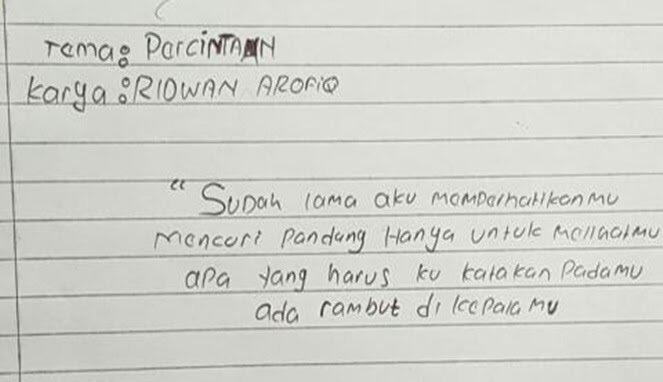 Tema: PerciNTAAN
Karya: RIDWAN AROFIQ
"Sudah lama aku memperhatikanmu
mencuri pandang Hanya untuk melihatmu
apa yang harus ku katakan padamu
ada rambut di kepalamu